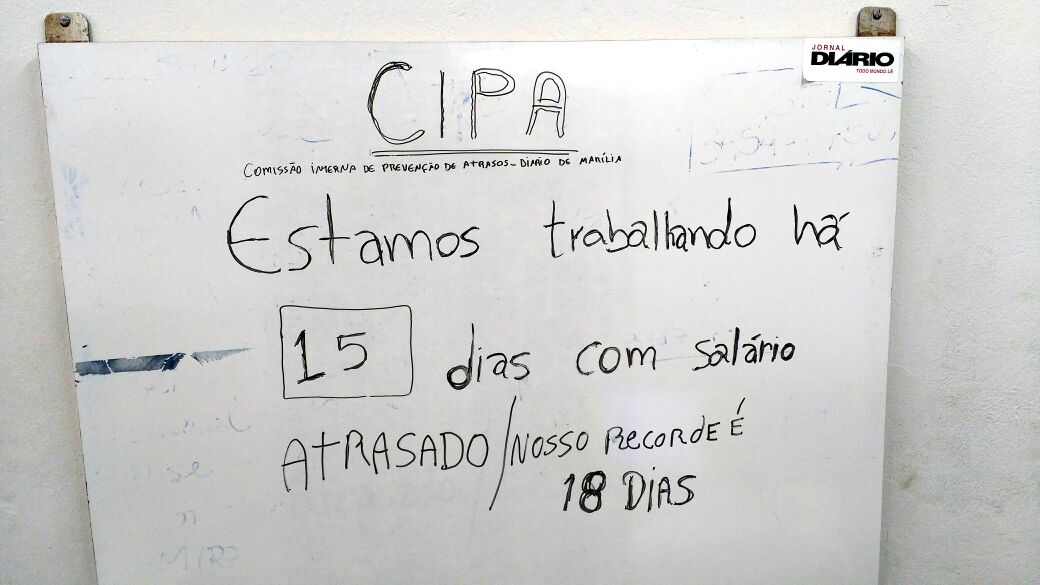 JORNAL
DIÁRIO
TODO MUNDO LÊ
CIPA
COMISSÃO INTERNA DE PREVENÇÃO DE ATRASOS - DIÁRIO DE MARÍLIA
Estamos trabalhando há
15 dias com salário
ATRASADO/NOSSO RECORDE É
18 DIAS